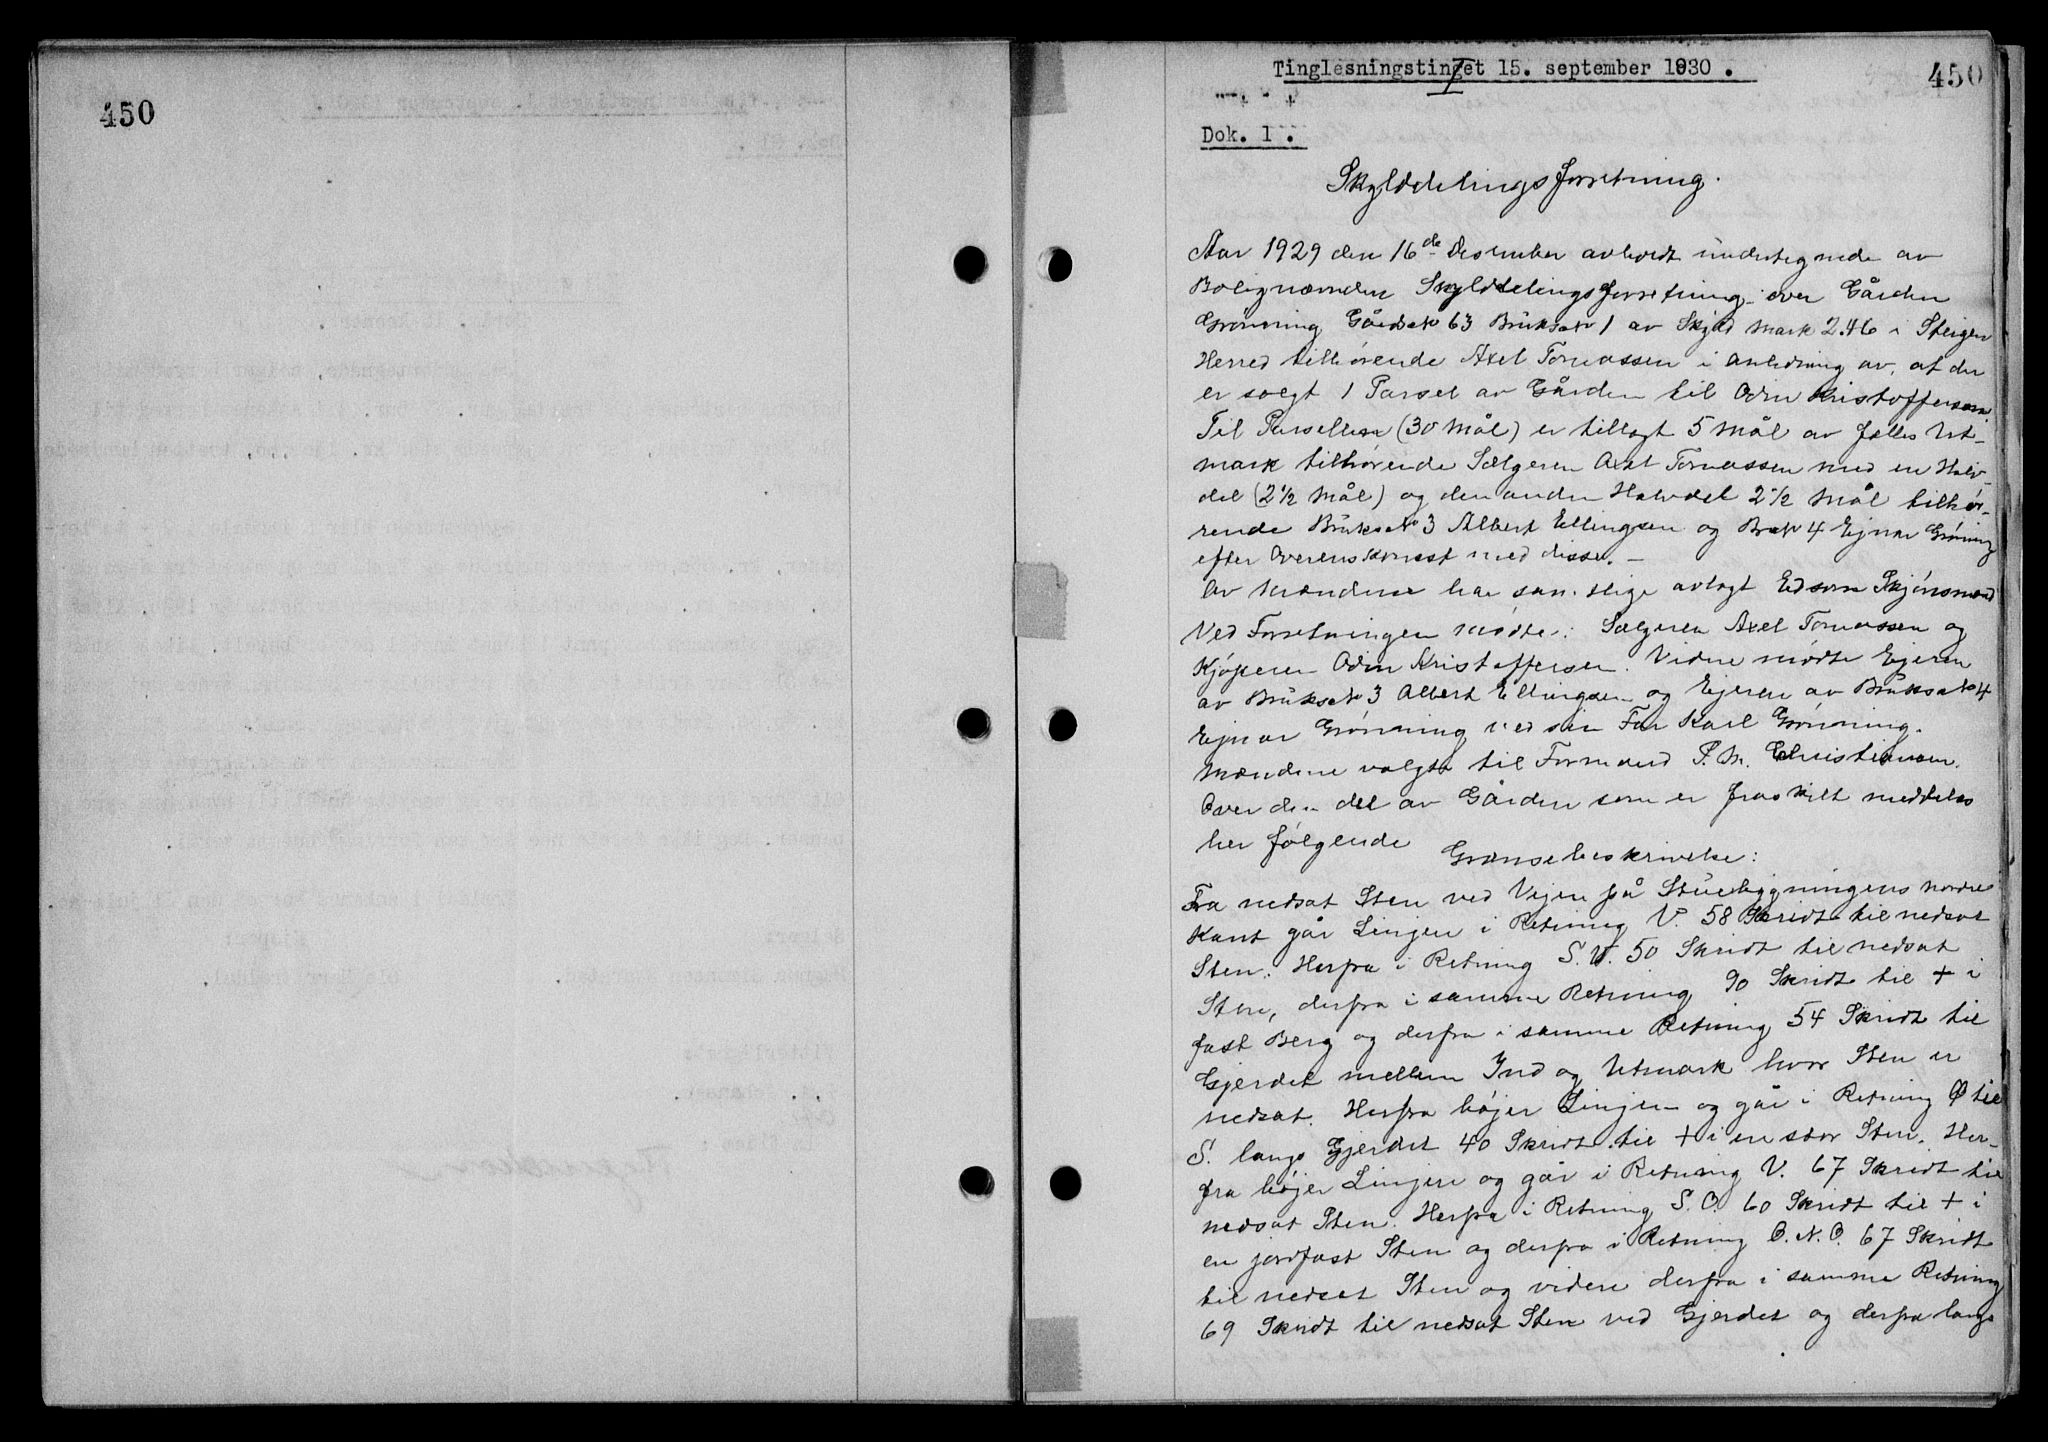 450
Tinglesningstinget 15. september 1930.
450
Dok. 1.
Skylddelingsforretning.
Aar 1929 den 16de Desember avholdt undertegnede av
Bolignævnden Skylddelingsforretning over Gården
Grønning Gårdsno 63 Bruksno 1 av Skyld Mark 2.46 i Steigen
Herred tilhørende Axel Tomassen i anledning av, at der
er solgt 1 Parsel av Gården til Odin Kristoffersen
Til Parsellen (30 Mål) er tillagt 5 Mål av fælles Ut-
mark tilhørende Sælgeren Axel Tomassen med en Halv-
del (2½ Mål) og den anden Halvdel 2½ Mål tilhø-
rende Bruksno 3 Albert Ellingsen og Brno 4 Ejnar Grønning
efter Overenskomst med disse. —
Av Mændene har samtlige avlagt Ed som Skjønsmænd
Ved Forretningen mødte: Sælgeren Axel Tomassen og
Kjøperen Odin Kristoffersen. Videre mødte Ejeren
av Bruksno 3 Albert Ellingsen og Ejeren av Bruksno 4
Ejnar Grønning ved sin Far Karl Grønning.
Mændene valgte til Formand P. M. Christiansen.
Over den del av Gården som er fraskilt meddeles
her følgende
Grænsebeskrivelse:
Fra nedsat Sten ved Vejen på Stuebygningens nordre
Kant går Linjen i Retning V. 58 Skridt til nedsat
Sten. Herfra i Retning S.V. 50 Skridt til nedsat
Sten, derfra i samme Retning 90 Skridt til + i
fast Berg og derfra i samme Retning 54 Skridt til
Gjerdet mellem Ind og Utmark hvor Sten er
nedsat. Herfra bøjer Linjen og går i Retning Ø til
S. langs Gjerdet 40 Skridt til + i en stor Sten. Her-
fra bøjer Linjen og går i Retning V. 67 Skridt til
nedsat Sten. Herfra i Retning S.O. 60 Skridt til + i
en jordfast Sten og derfra i Retning O.N.O. 67 Skridt
til nedsat Sten og videre derfra i samme Retning
69 Skridt til nedsat Sten ved Gjerdet og derfra langs